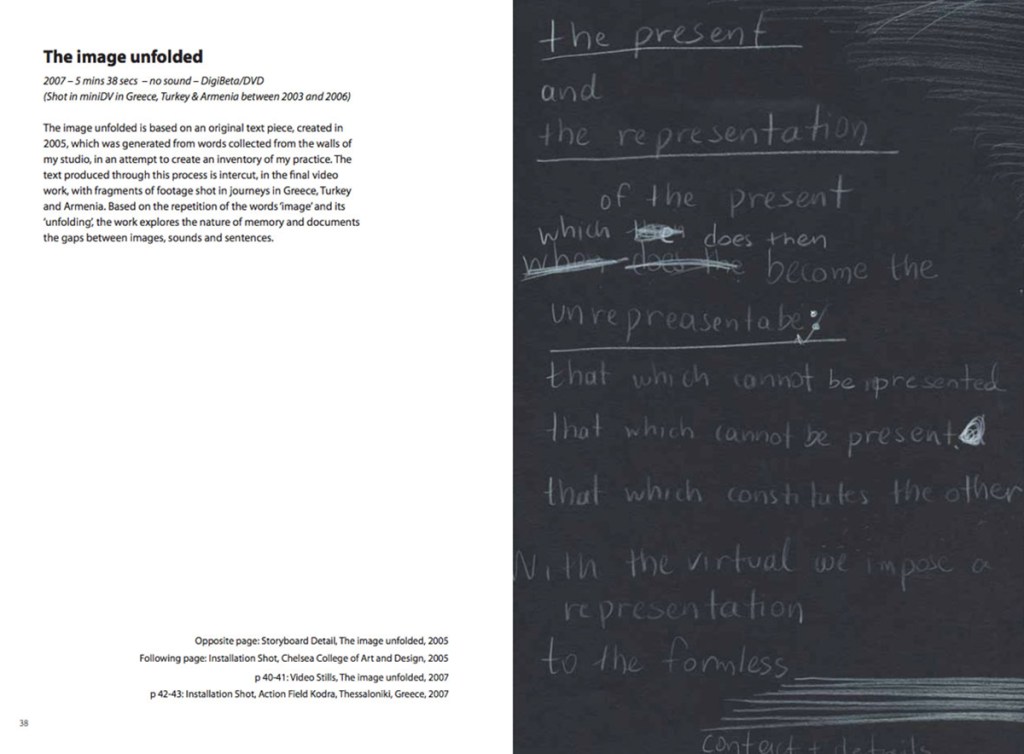 The image unfolded
2007 – 5 mins 38 secs – no sound – DigiBeta/DVD
(Shot in miniDV in Greece, Turkey & Armenia between 2003 and 2006)
The image unfolded is based on an original text piece, created in
2005, which was generated from words collected from the walls of
my studio, in an attempt to create an inventory of my practice. The
text produced through this process is intercut, in the final video
work, with fragments of footage shot in journeys in Greece, Turkey
and Armenia. Based on the repetition of the words 'image' and its
'unfolding', the work explores the nature of memory and documents
the gaps between images, sounds and sentences.
Opposite page: Storyboard Detail, The image unfolded, 2005
Following page: Installation Shot, Chelsea College of Art and Design, 2005
p 40-41: Video Stills, The image unfolded, 2007
p 42-43: Installation Shot, Action Field Kodra, Thessaloniki, Greece, 2007
38
the present
and
the representation
of the present
which the does then
when does the become the
unrepreasentabe:
that which cannot be presented
that which cannot be present
that which constitutes the other
With the virtual we impose a
representation
to the formless
contact + details